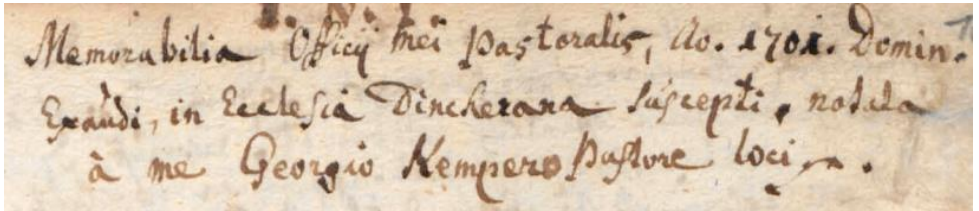 Memorabilia Officij mei Pastoralis, Ao. 1701. Domin.
Exaudi, in Ecclesia Dinckerana suscepti, notata
à me Georgio Kempero Pastore loci.